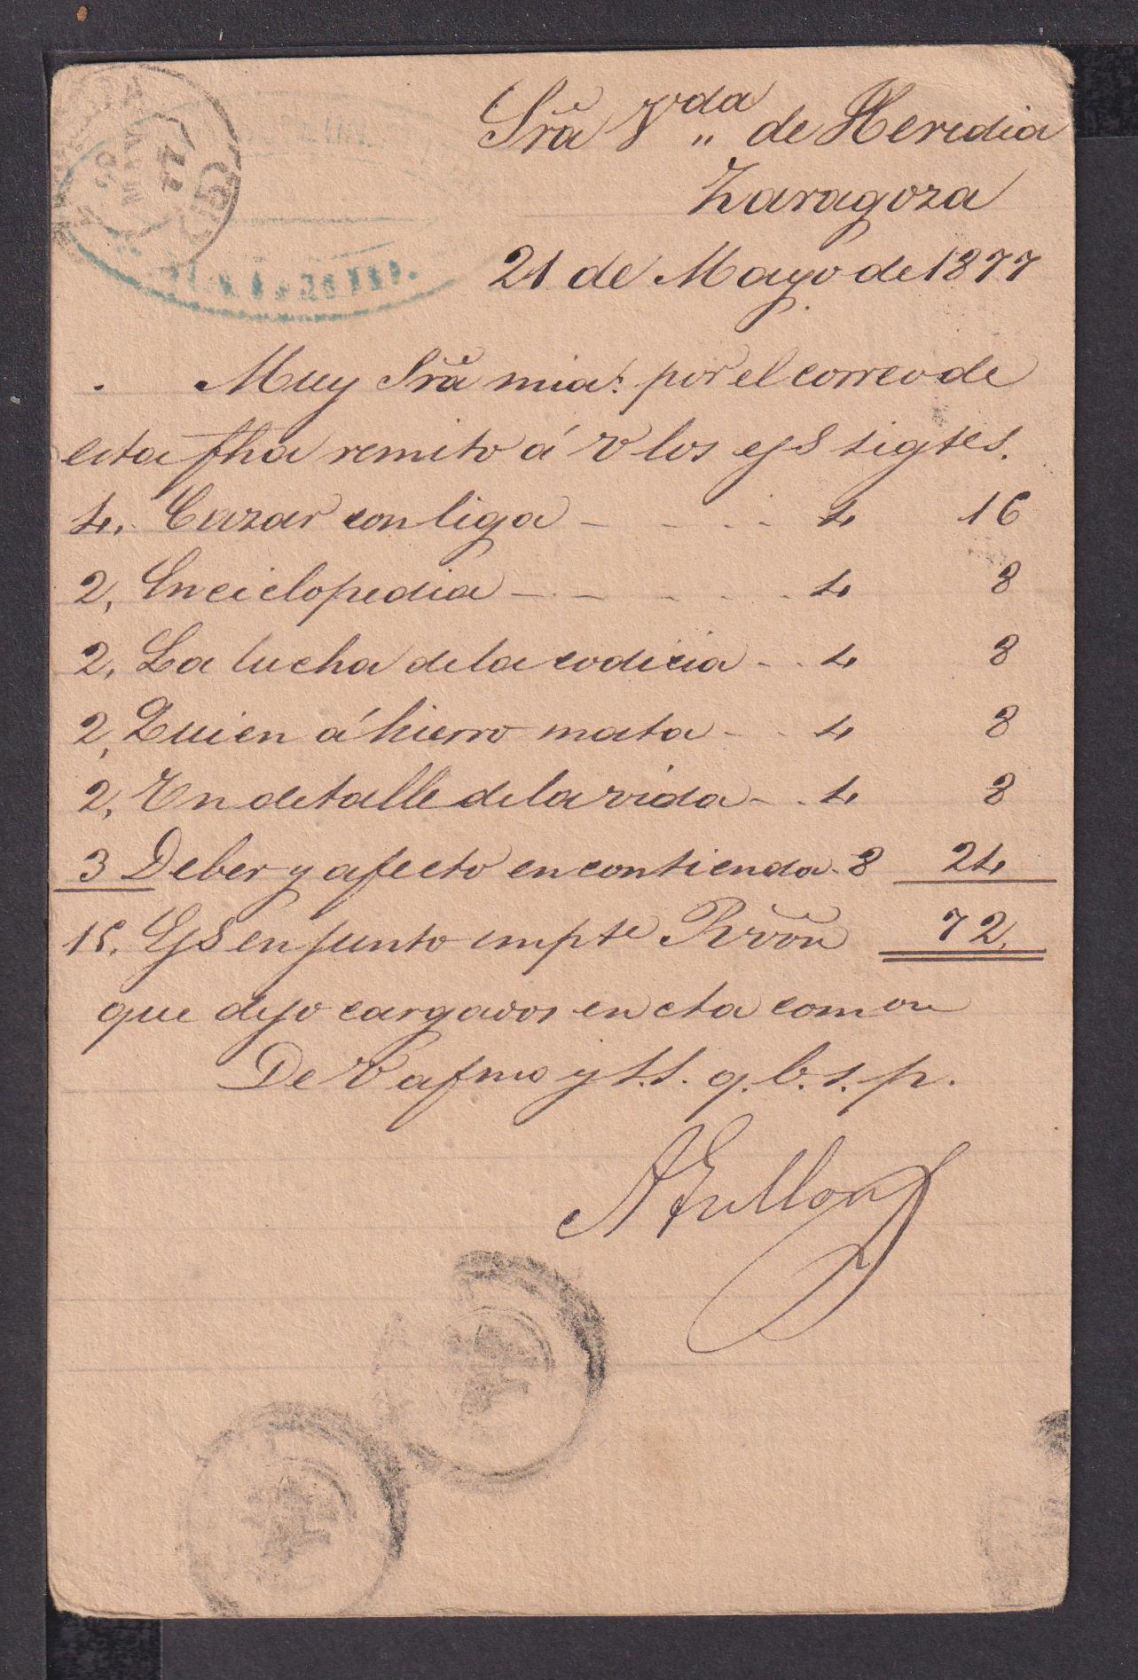 Sra Vda de Heredia
Zaragoza
21 de Mayo de 1877
Muy Sra mia: por el correo de
esta fha remito á V los ejs sigtes.
4. Cazar con liga - - - - 4 16
2, Enciclopedia - - - - - 4 8
2. La lucha de la codicia - - 4 8
2, Quien á hierro mata - - 4 8
2, Un detalle de la vida - - 4 8
3 Deber y afecto en contienda - 8 24
15. Ejs en junto impte Rvon 72.
que dejo cargados en cta com on
De V afmo y s.s. q. b. s. p.
A Gullon
MAY
77